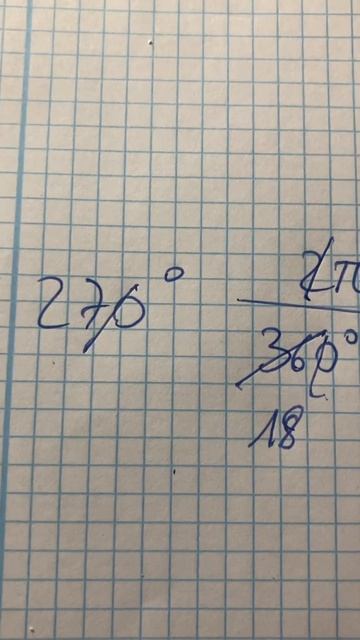 270° 2π
360°
18